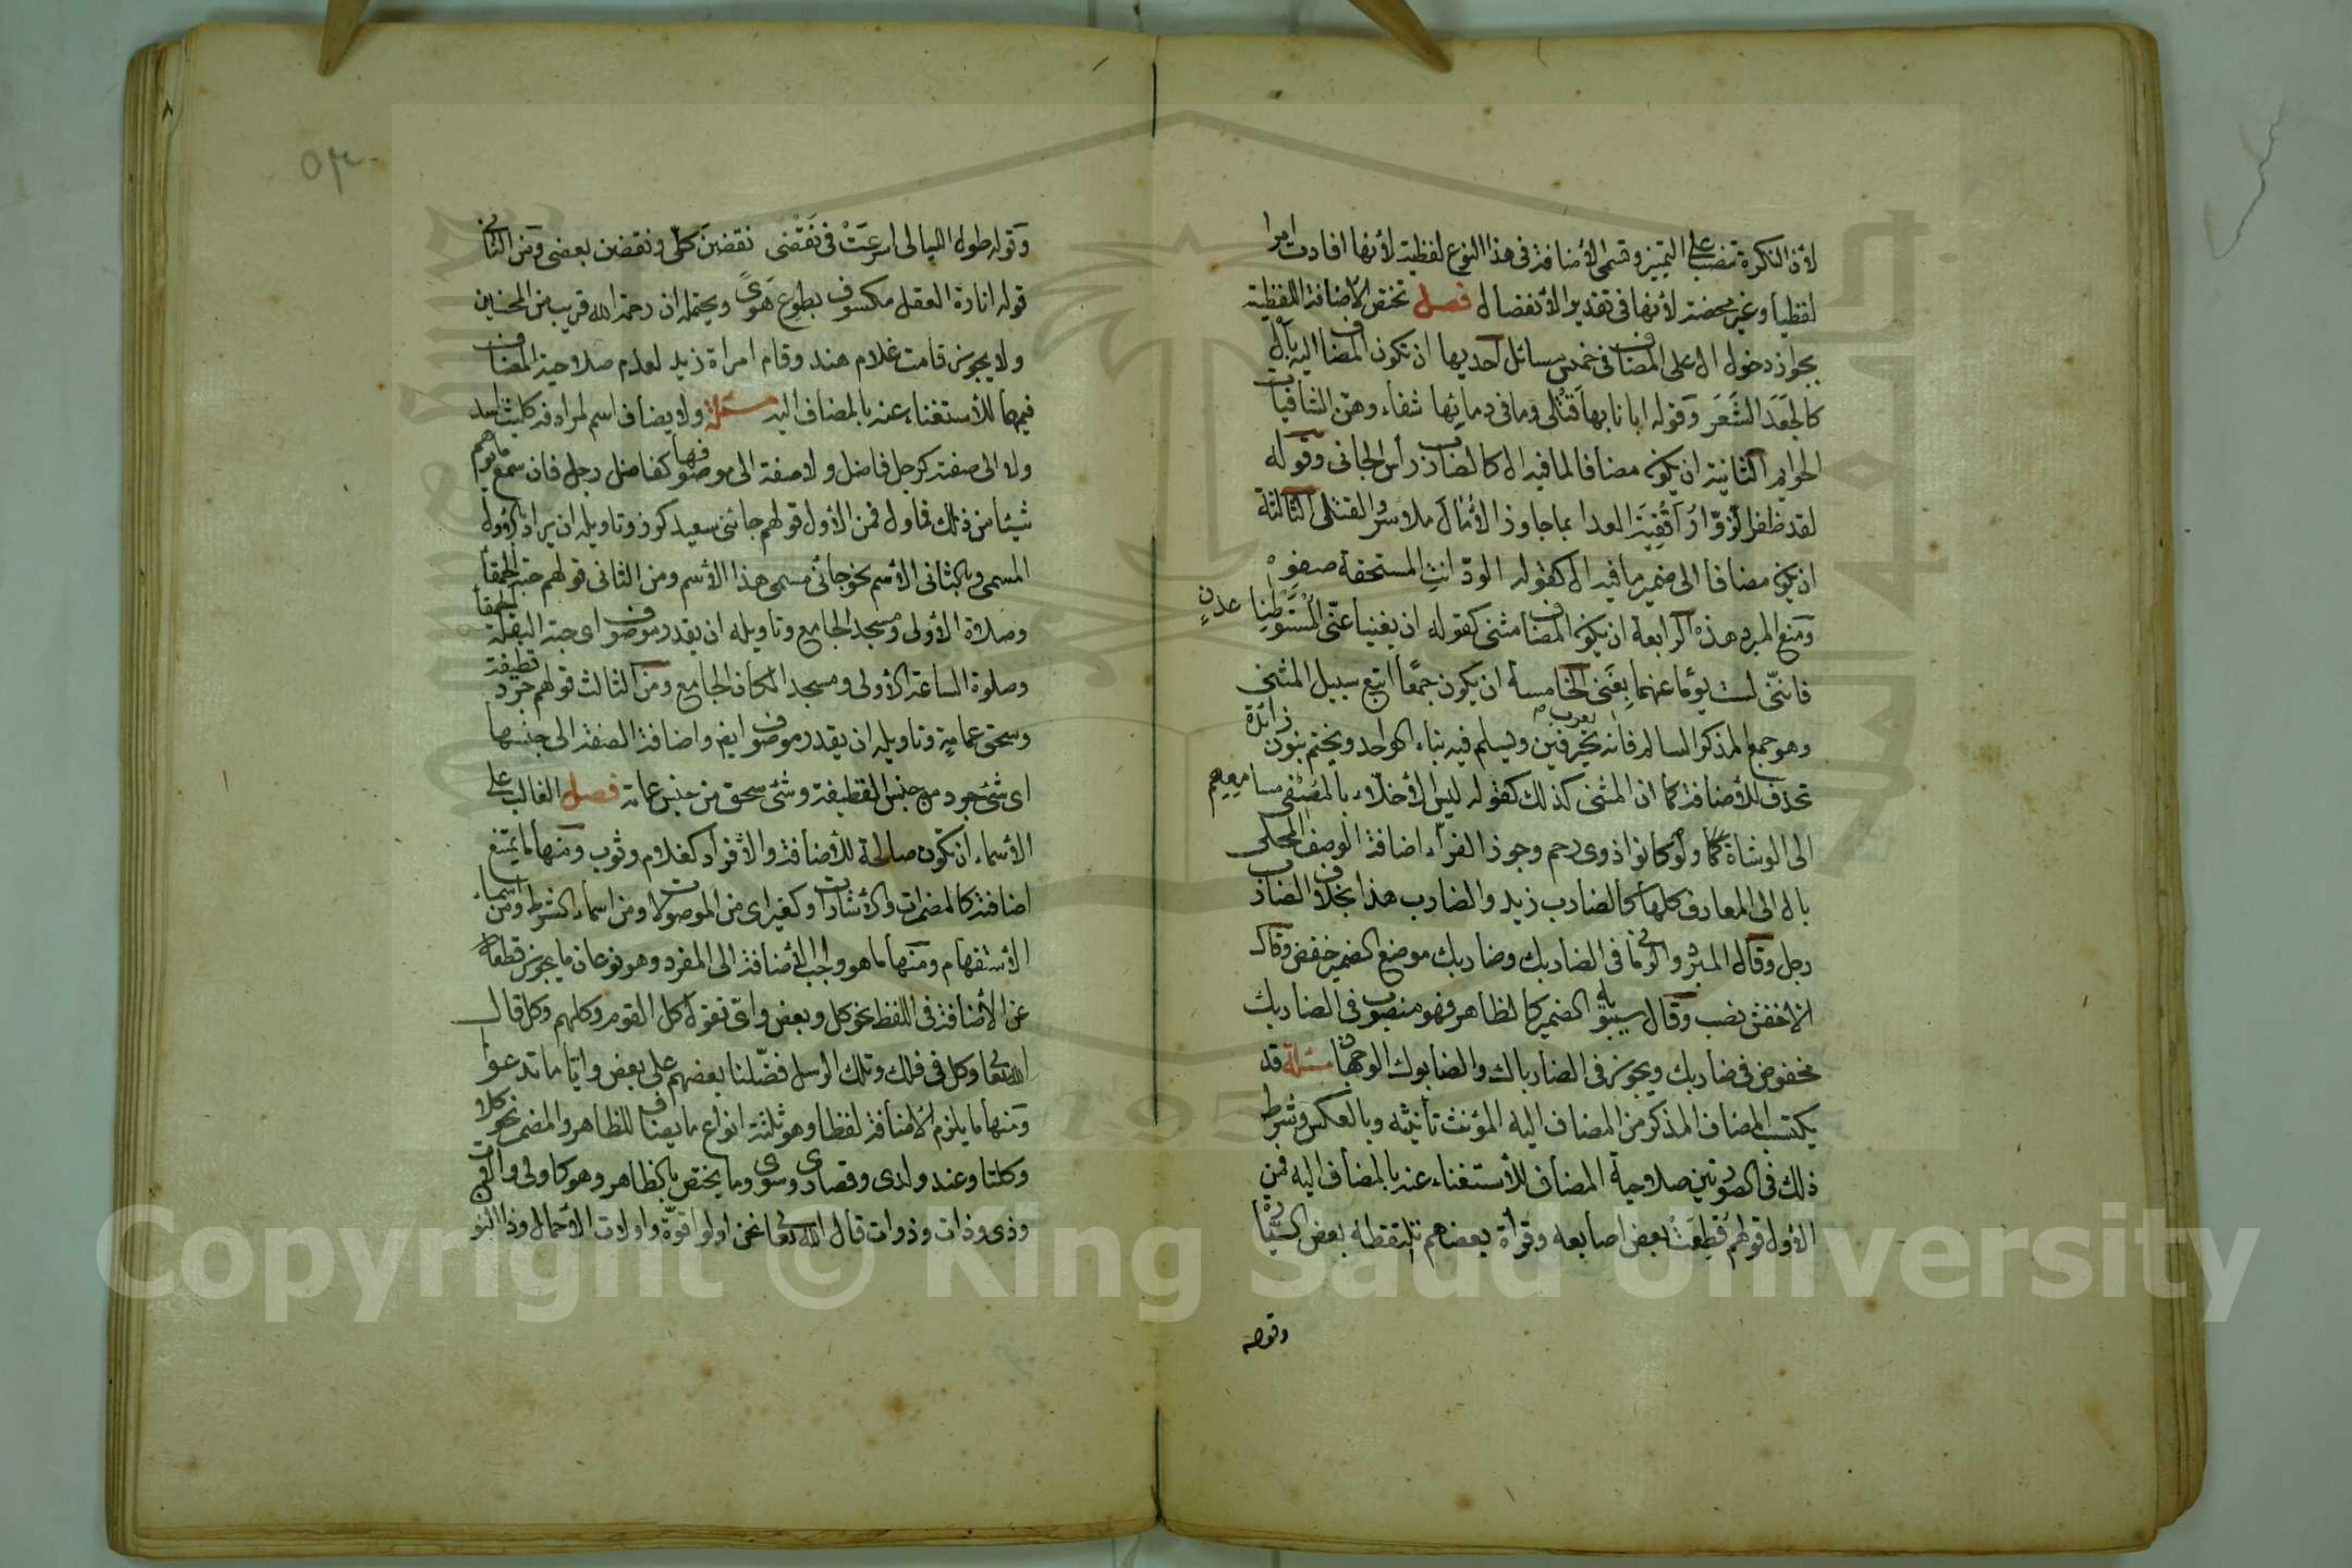 لأن النكرة تنصب على التمييز وتسمى الأضافة فى هذا النوع لفظية لأنها افادت امرا
لفظيا وغير محضة لأنها فى تقدير الأنفصال فصل تختص الأضافة اللفظية
بجواز دخول ال على المضاف فى خمس مسائل احديها ان تكون المضاف اليه بأل
كالجعد الشَعَر وقوله ابانا بها قتلى وما فى دمائها شفاء وهن الشافيات
الحوايم الثانية ان يكون مضافا لما فيه ال كالضارب رأس الجانى وقوله
لقد ظفر الزوّار اقفية العدا بما جاوز الأمال ملأسر والقتلى الثالثة
ان يكون مضافا الى ضمير ما فيه ال كقوله الود انتِ المستحقة صفوِه
ومنع المبرد هذه الرابعة ان يكون المضاف مثنى كقوله ان يغنيا عنّى المستوطِنا عدنٍ
فاننى لست يوما عنهما بِغَنى الخامسة ان يكون جمعًا اتبع سبيل المثنى
وهو جمع المذكر السالم فانه يعرب بحرفين ويسلم فيه بناء الواحد ويختم بنون زائدة
تحذف للأضافة كما ان المثنى كذلك كقوله ليس الأخلاء بالمصْغى مسامعهم
الى الوشاة كما ولو كانوا ذوى رحم وجوز الفرّاء اضافة الوصف المحلى
بال الى المعارف كلها كالضارب زيد والضارب هذا بخلاف الضارب
رجل وقال المبرد والرمانى فى الضاربك وضاربك موضع الضمير خفض وقال
الأخفش نصب وقال سيبويه الضمير كالظاهر فهو منصوب فى الضاربك
مخفوض فى ضاربك ويجوز فى الضارباك والضاربوك الوجهان مسئلة قد
يكتسب المضاف المذكر من المضاف اليه المؤنث تأنيثه وبالعكس وشرط
ذلك فى الصورتين صلاحية المضاف للأستغناء عنه بالمضاف اليه فمن
الأول قولهم قُطِعَت بعض اصابعه وقرأة بعضهم تلتقطه بعض السيّارة
وقوله
٥٣
وقوله طول الليالى اسرعَتْ فى نَقْضى نقضن كلّى ونقضن بعضى ومن الثانى
قوله انارة العقل مكسوف بطوع هَوىً ويحتمله ان رحمة الله قريب من المحسنين
ولا يجوز قامت غلام هند وقام امراة زيد لعدم صلاحية المضاف
فيهما للأستغناء عنه بالمضاف اليه مسئلة ولا يضاف اسم لمرادفه كليث اسد
ولا الى صفته كرجل فاضل ولا صفة الى موصوفها كفاضل رجل فان سمع ما يوهم
شيئا من ذلك فماول فمن الأول قولهم جائنى سعيد كرز وتاويله ان يراد بالأول
المسمى وبالثانى الأسم نحو جائنى مسمى هذا الأسم ومن الثانى قولهم حبة الحمقأ
وصلاة الأولى ومسجد الجامع وتاويله ان يقدر موصوف اى حبة البقلة الحمقأ
وصلوة الساعة الأولى ومسجد المكان الجامع ومن الثالث قولهم جرد قطيفة
وسحق عمامة وتاويله ان يقدر موصوف ايضا واضافة الصفة الى جنسها
اى شئ جرد من جنس القطيفة وشئ سحق من جنس عمامة فصل الغالب على
الأسماء ان تكون صالحة للأضافة والأفراد كغلام وثوب ومنها ما يمتنع
اضافته كالمضمرات والأشارات وكغير اى من الموصولات ومن اسماء الشرط ومن اسماء
الأستفهام ومنها ما هو واجب الأضافة الى المفرد وهو نوعان ما يجوز قطعه
عن الأضافة فى اللفظ نحو كل وبعض واىّ تقول كل القوم وكلهم وكل قال
الله تعا وكل فى فلك وتلك الرسل فضّلنا بعضهم على بعض وايّا ما تدعوا
ومنها ما يلزم الأضافة لفظا وهو ثلثة انواع ما يضاف للظاهر والمضمر نحو كلا
وكلتا وعند ولدى وقصارى وسوى وما يختص بالظاهر وهو كاولى واولات
وذى وذات وذوات قال الله تعا نحن اولوا قوّة واولات الأحمال وذا النو
Copyright © King Saud University
1957